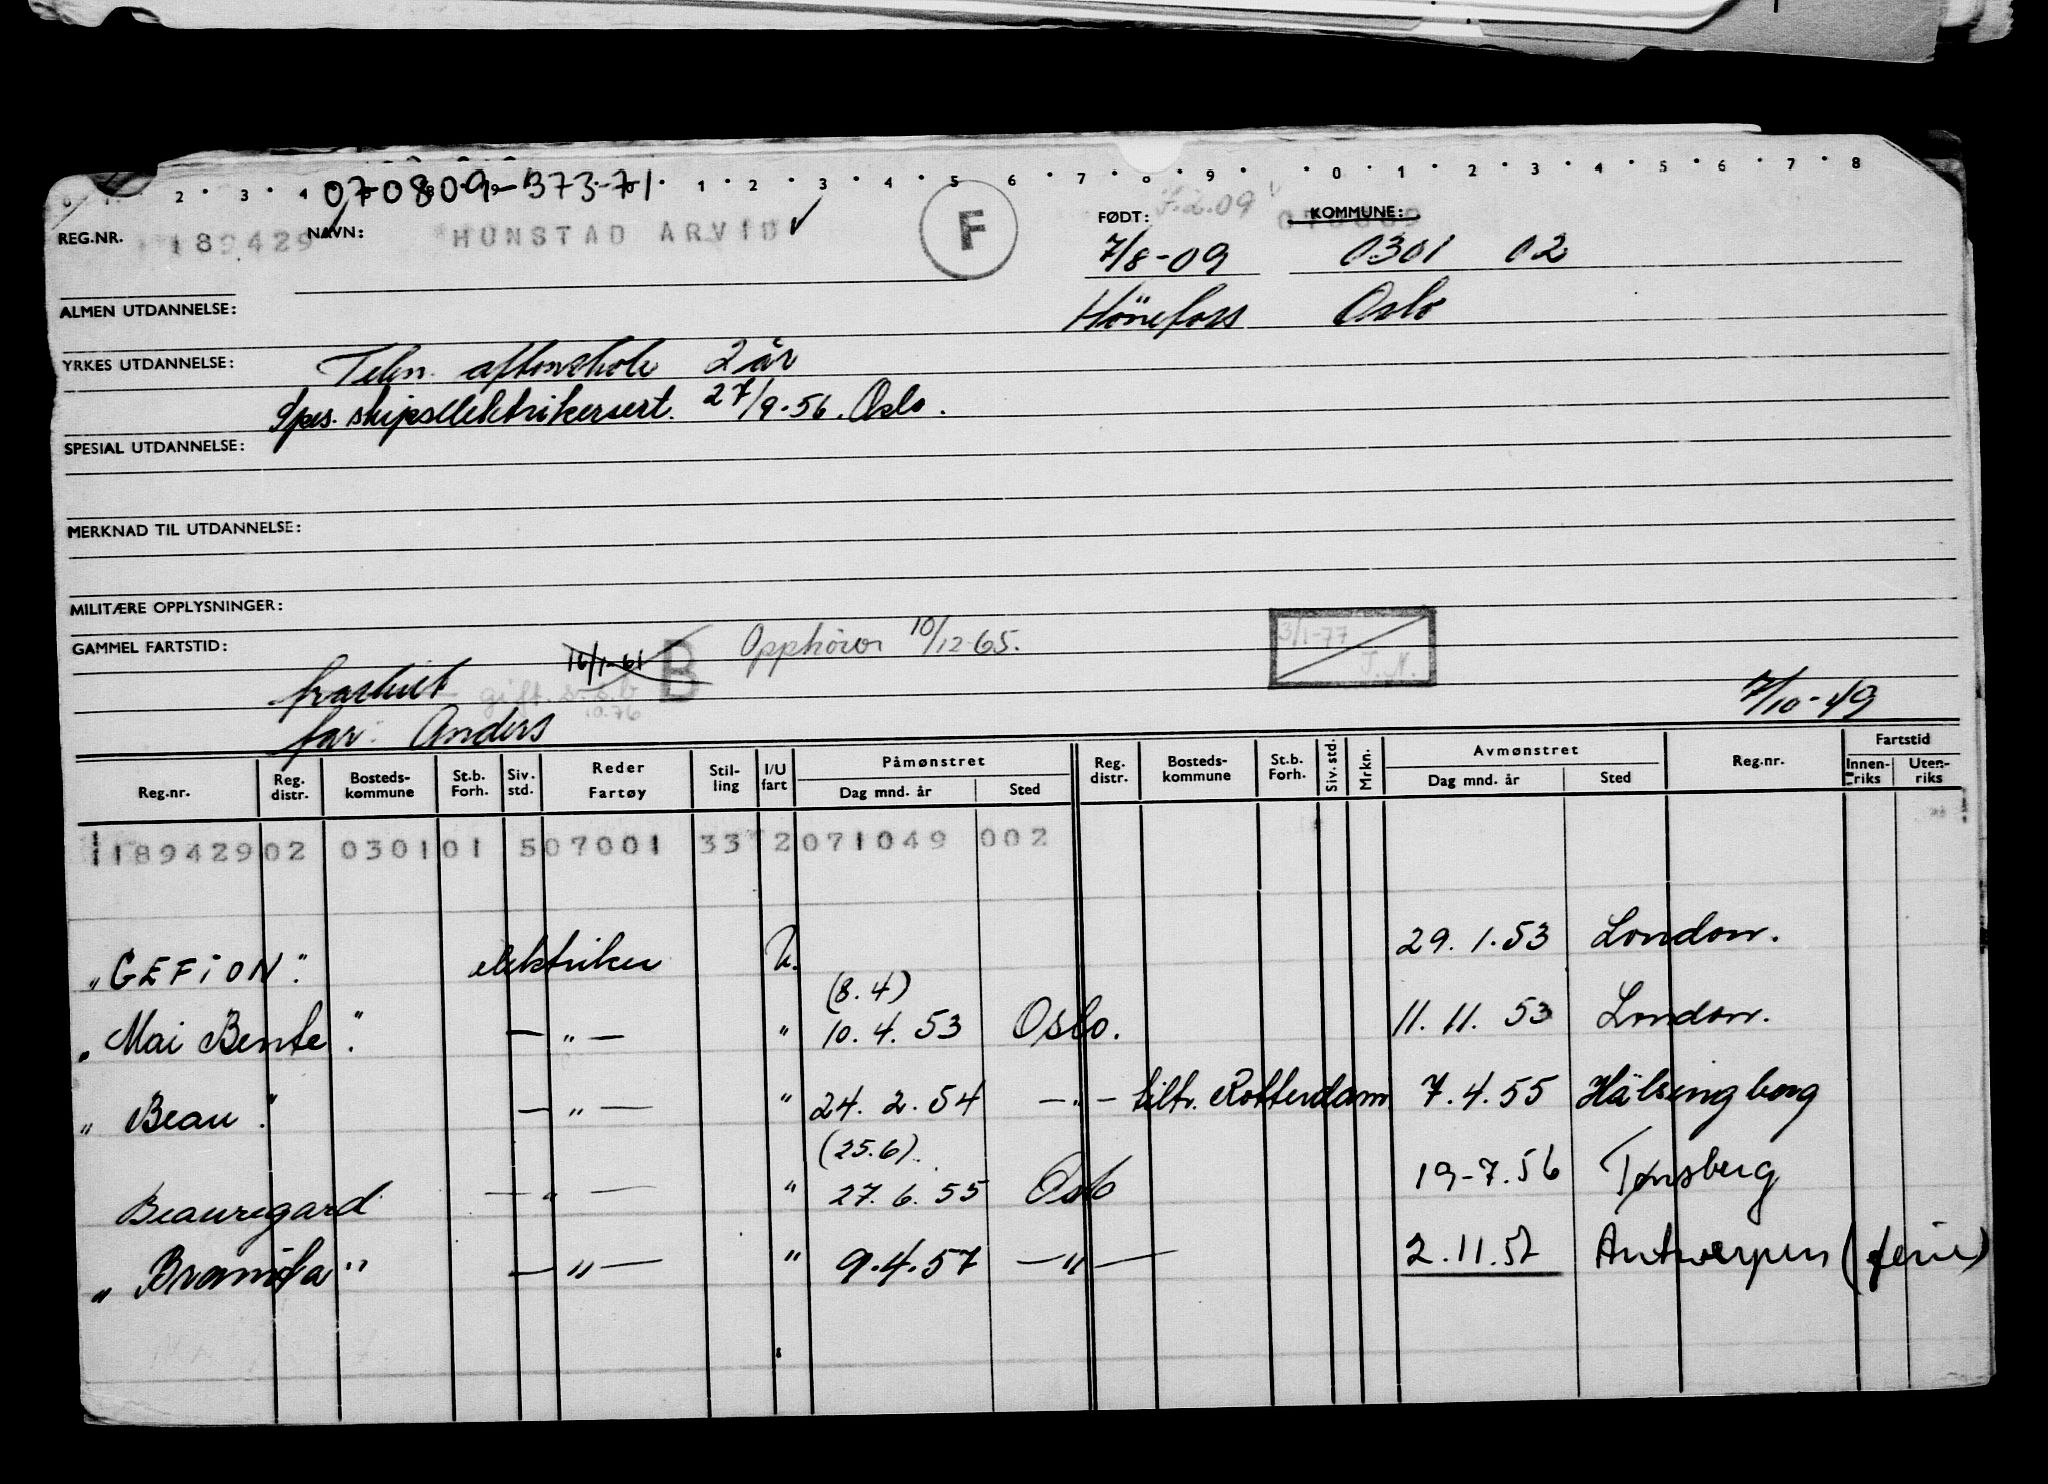 2 · 3 · 4 1 · 2 · 3 · 4 · 5 · 6 · 7 · 8 · 9 · 0 · 1 · 2 · 3 · 4 · 5 · 6 · 7 · 8
070809-37371
REG.NR. 189429 NAVN: HUNSTAD ARVID ✓ F FØDT: KOMMUNE:
7/8-09 0301 02
ALMEN UTDANNELSE: Hönefoss Oslo
YRKES UTDANNELSE: Tekn. aftenskole 2 år
Spes. skipselektrikersert. 27/9-56. Oslo.
SPESIAL UTDANNELSE:
MERKNAD TIL UTDANNELSE:
MILITÆRE OPPLYSNINGER:
GAMMEL FARTSTID: 16/1-61 B Opphörer 10/12-65. 3/1-77
fraskilt gift 10.76 7/10-49
far: Anders
Reg.nr. Reg. distr. Bosteds-kommune St.b. Forh. Siv. std. Reder Fartøy Stil-ling I/U fart Påmønstret Dag mnd. år Sted Reg. distr. Bosteds-kommune St.b. Forh. Siv. std. Mrkn. Avmønstret Dag mnd. år Sted Reg.nr. Fartstid Innen-riks Uten-riks
189429 02 0301 01 5 07001 33 2 071049 002
"GEFION". elektriker U. 29.1.53 London.
(8.4)
"Mai Bente". — " — " 10.4.53 Oslo. 11.11.53 London.
"Beau". — " — " 24.2.54 — " — tiltr. Rotterdam 7.4.55 Hälsingborg
(25.6).
Beauregard — " — " 27.6.55 Oslo 19-7.56 Tønsberg
"Bramita" — " — " 9.4.57 — " — 2.11.57 Antwerpen (ferie)